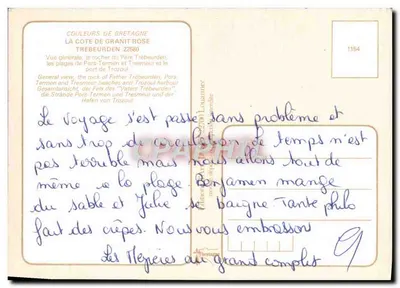 COULEURS DE BRETAGNE
LA COTE DE GRANIT ROSE
TREBEURDEN 22560
Vue générale, le rocher du Père Trébeurden,
les plages de Pors Termen et Tresmeur et le
port de Trozoul
General view, the rock of Father Trebeurden, Pors
Termen and Tresmeur beaches and Trozoul harbour
Gesamtansicht, die Fels des "Vaters Trébeurden",
die Strände Pors-Termen und Tresmeur und der
Hafen von Trozoul
1194
Le voyage s'est passé sans problème et
sans trop de circulation. Le temps n'est
pas terrible mais nous allons tout de
même à la plage. Benjamen mange
du sable et Julie se baigne Tante philo
fait des crêpes. Nous vous embrassons
Les Mézières au grand complet